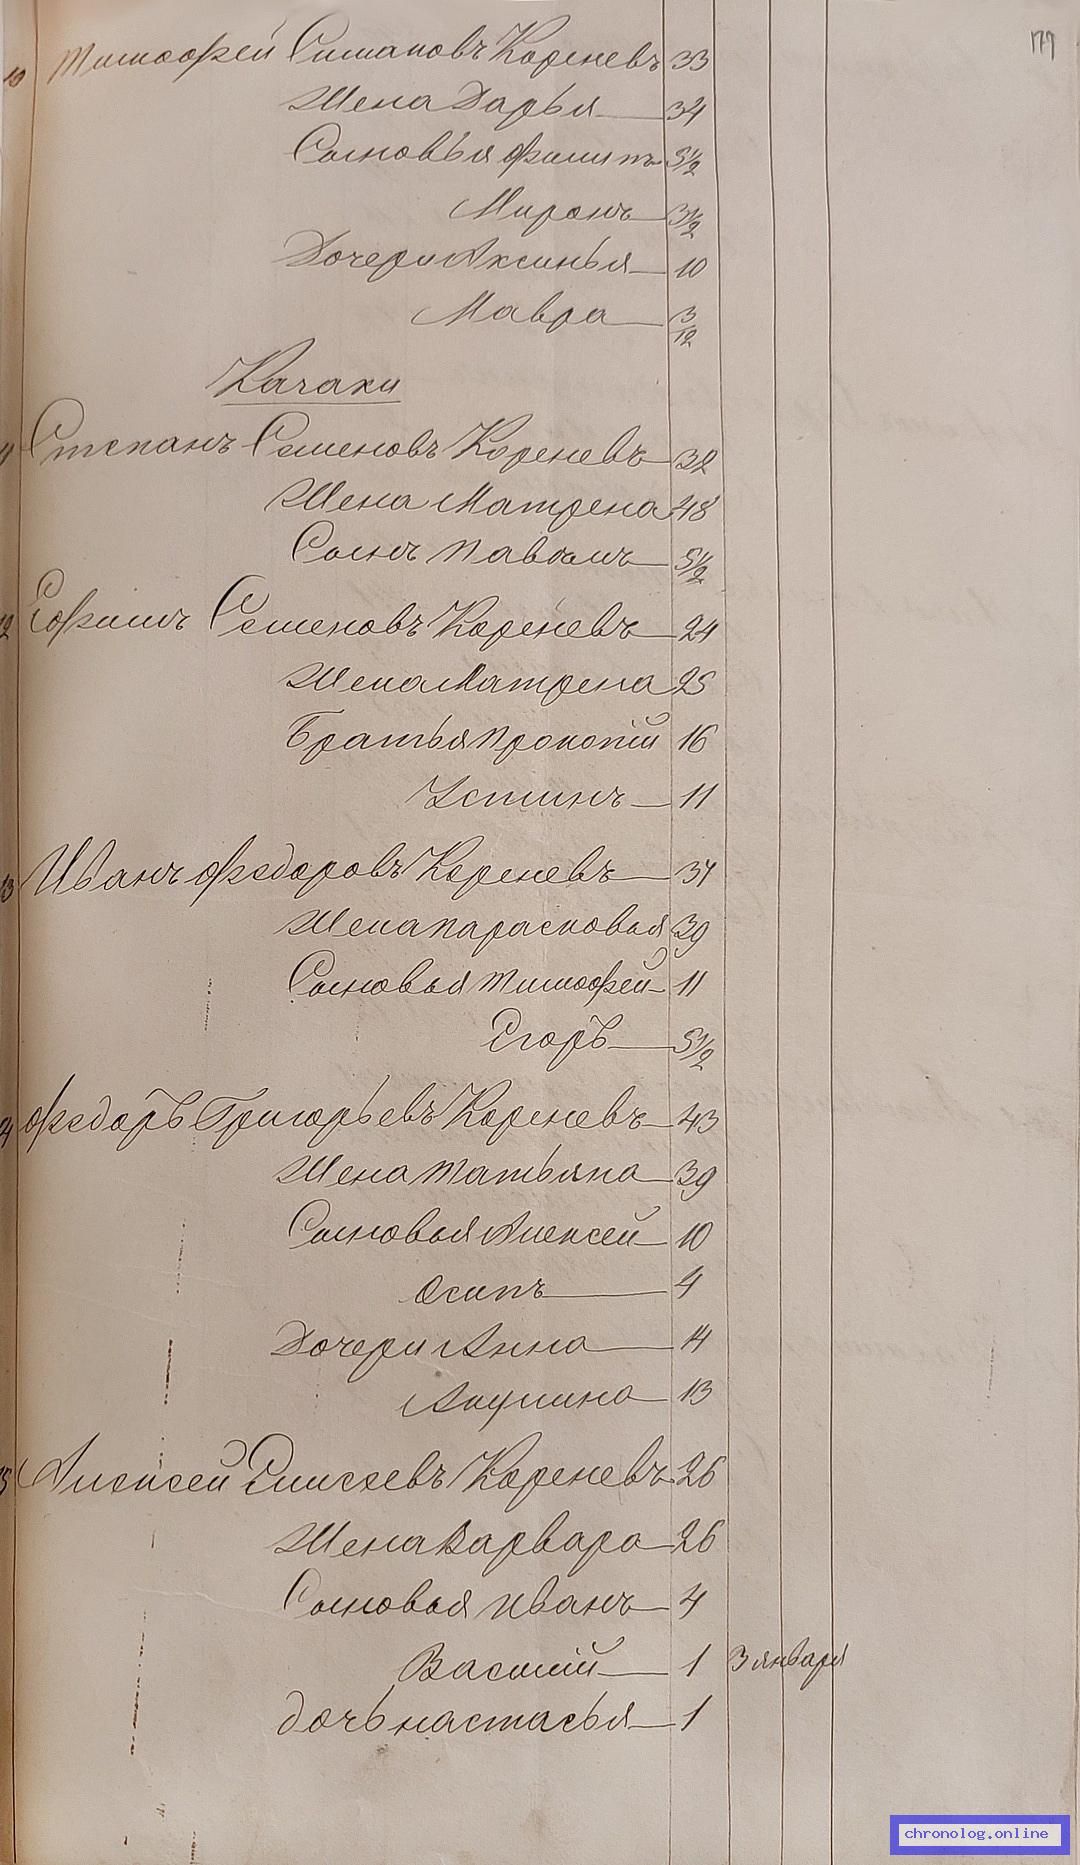 179
10 Тимофей Симановъ Кореневъ 33
Жена Дарья 34
Сыновья Филипъ 5 1/2
Миронъ 3 1/2
Дочери Аксинья 10
Мавра 3/12
Качаки
11 Степанъ Семеновъ Кореневъ 32
Жена Матрена 48
Сынъ Павелъ 5 1/2
12 Ефимъ Семеновъ Кореневъ 24
Жена Матрена 25
Братья Прокопій 16
Устинъ 11
13 Иванъ Федоровъ Кореневъ 37
Жена Парасковья 39
Сыновья Тимофей 11
Егоръ 5 1/2
14 Федоръ Григорьевъ Кореневъ 43
Жена Татьяна 39
Сыновья Алексей 10
Осипъ 4
Дочери Анна 14
Акулина 13
15 Алексей Елисеевъ Кореневъ 26
Жена Варвара 26
Сыновья Иванъ 4
Василій 1 3 января
дочь Настасья 1
chronolog.online